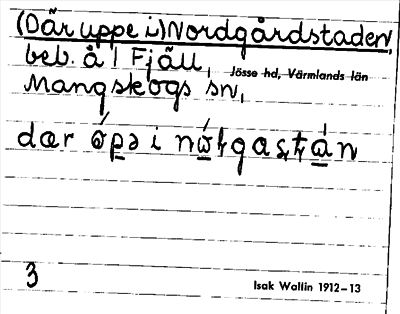 (Där uppe i) Nordgårdstaden,
beb. å 1 Fjäll,
Jösse hd, Värmlands län
Mangskogs sn,
dær ópə i
3
Isak Wallin 1912–13